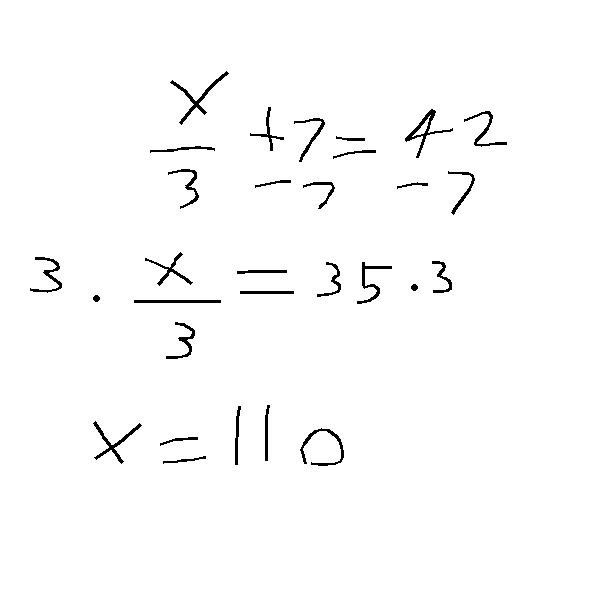 x/3 + 7 = 42
- 7 - 7
3 · x/3 = 35 · 3
x = 110